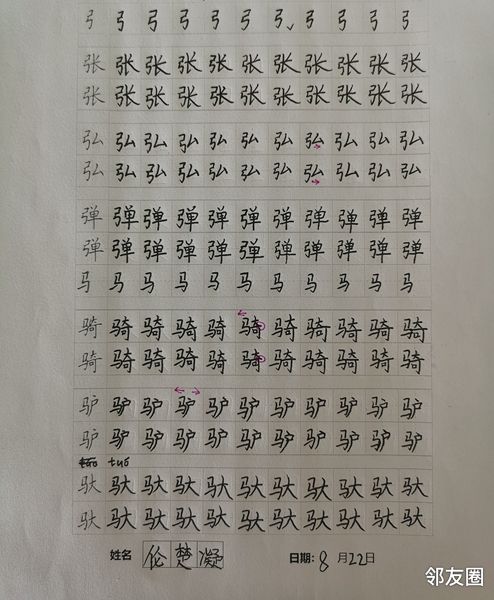 弓弓弓弓弓弓弓弓弓弓弓
张张张张张张张张张张张
张张张张张张张张张张张
弘弘弘弘弘弘弘弘弘弘弘
弘弘弘弘弘弘弘弘弘弘弘
弹弹弹弹弹弹弹弹弹弹弹
弹弹弹弹弹弹弹弹弹弹弹
马马马马马马马马马马马
骑骑骑骑骑骑骑骑骑骑骑
骑骑骑骑骑骑骑骑骑骑骑
驴驴驴驴驴驴驴驴驴驴驴
驴驴驴驴驴驴驴驴驴驴驴
tuó
驮驮驮驮驮驮驮驮驮驮驮
驮驮驮驮驮驮驮驮驮驮驮
姓名 伦楚凝 日期: 8月22日
邻友圈